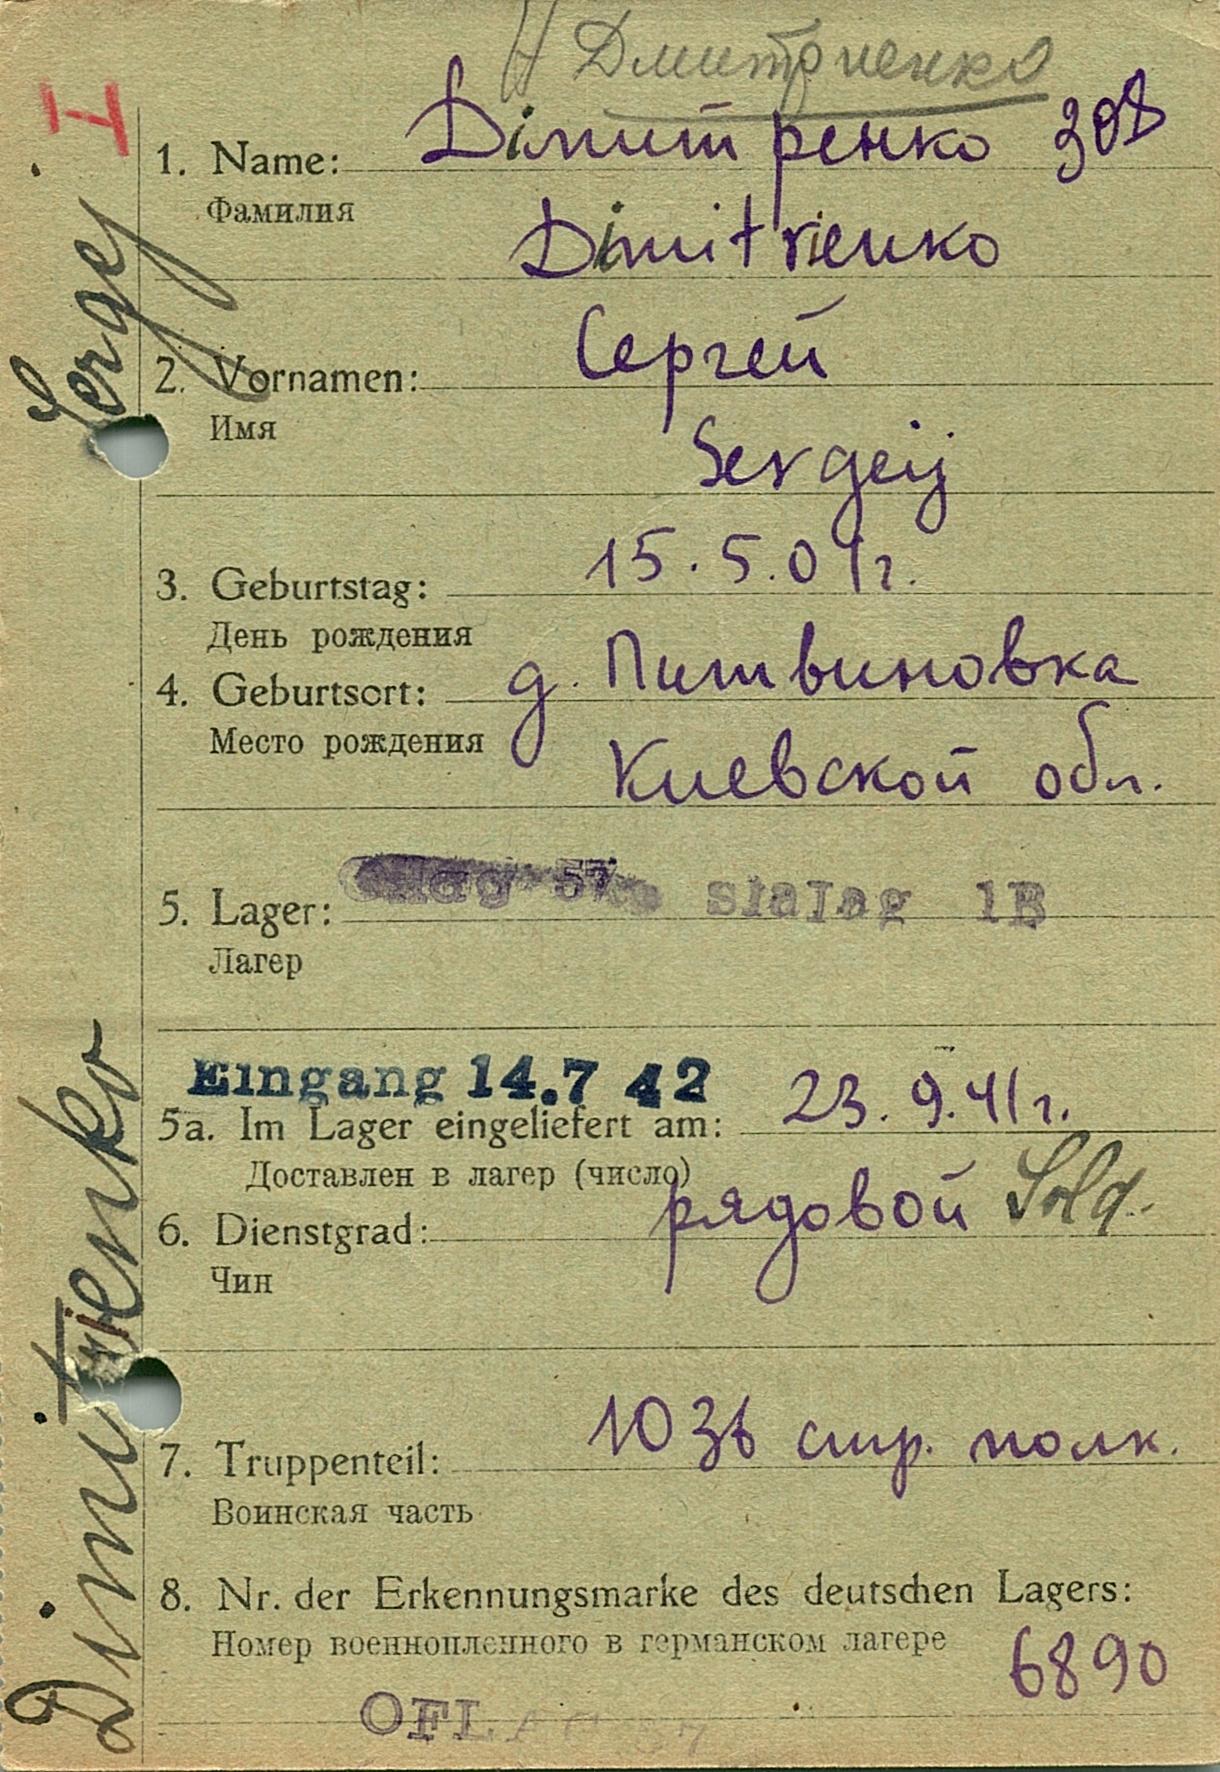 Дмитриенко
I
1. Name: Димитренко 308
Фамилия
Dimitrienko
2. Vornamen: Сергей
Имя
Sergeij
3. Geburtstag: 15.5.01г.
День рождения
4. Geburtsort: д. Питвиновка
Место рождения
Киевской обл.
5. Lager: Oflag 57 Stalag 1B
Лагер
Eingang 14.7 42
5a. Im Lager eingeliefert am: 23.9.41г.
Доставлен в лагер (число)
6. Dienstgrad: рядовой Sold.
Чин
7. Truppenteil: стр. полк.
Воинская часть
8. Nr. der Erkennungsmarke des deutschen Lagers:
Номер военнопленного в германском лагере 6890
OFLAG 57
Dimitrienko Sergej